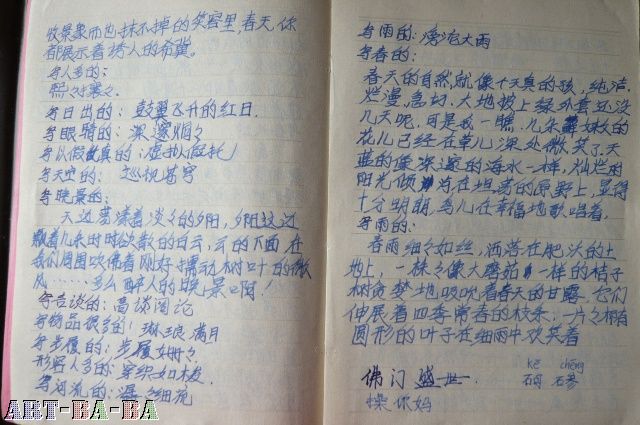 牧景象而也抹不掉的笑容里,春天,你
都展示着诱人的希冀。
写人多的:
熙々攘々.
写日出的:鼓翼飞升的红日.
写眼睛的:深邃炯々
写以假做真的:虚拟假托/
写天空的:巡视苍穹
写晚景的:
天边荡漾着淡々的夕阳,夕阳这边
飘着几朵时时欲散的白云,云的下面,在
我们周围吹佛着刚好撂动树叶的微
风……多么醉人的晚景啊!
写告谈的:高谈阔论
写物品很多的:琳琅满月
写步履的:步履姗々
形容人多的:穿织如梭.
写河流的:涓々细流
写雨的:滂沱大雨
写春的:
春天的自然,就像个天真的孩,纯洁.
烂漫,急切.大地披上绿外套还没
几天呢,可是我一瞧,几朵
花儿已经在草儿深处微笑了.天
蓝的像深邃的海水一样,灿烂的
阳光倾泻在坦荡的原野上,显得
十分明朗,鸟儿在幸福地歌唱着,
写雨的:
春雨细々如丝,洒落在肥沃的土
地上,一株々像大蘑菇一样的桔子
树贪婪地吸吮着春天的甘露.它们
伸展着四季常春的枝条,一片々椭
圆形的叶子在细雨中欢笑着
kē chěng
佛门盛世 珂 碜
操你妈
ART-BA-BA